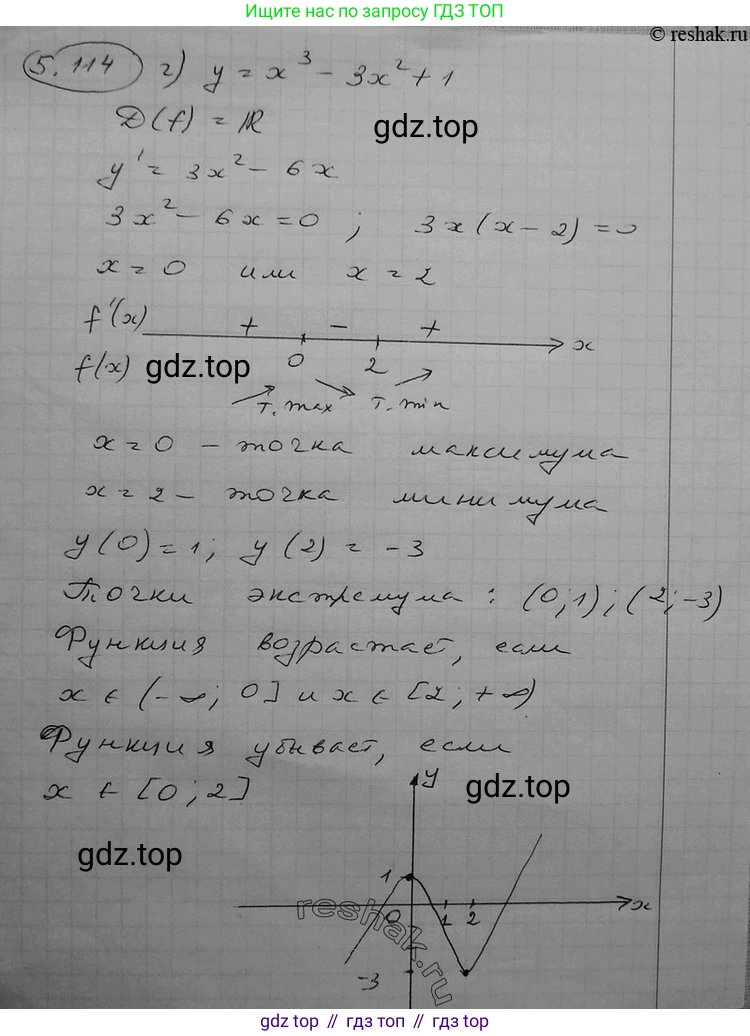 Ищите нас по запросу ГДЗ ТОП
© reshak.ru
5.114 г) y = x³ - 3x² + 1
D(f) = ℝ
gdz.top
y' = 3x² - 6x
3x² - 6x = 0 ; 3x(x - 2) = 0
x = 0 или x = 2
f'(x) + - + x
f(x) gdz.top 0 2
т. max т. min
x = 0 - точка максимума
x = 2 - точка минимума
y(0) = 1; y(2) = -3
Точки экстремума : (0;1); (2;-3)
Функция возрастает, если
x ∈ (-∞; 0] и x ∈ [2; +∞)
Функция убывает, если
x ∈ [0; 2]
y
gdz.top
gdz.top
1
x
0 1 2
reshak.ru
-3
gdz.top // гдз топ // gdz.top // гдз топ // gdz.top